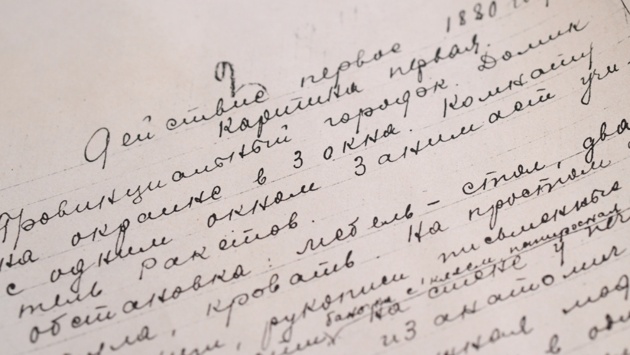 1880 г
Действие первое
Картина первая.
Провинциальный городок. Домик
на окраине в 3 окна. Комнату
с одним окном занимает учи-
тель Ракетов.
обстановка: мебель – стол, два
кровать. На простом
рукописи письменные
баночка с клеем папиросная
на стене у
из анатомич